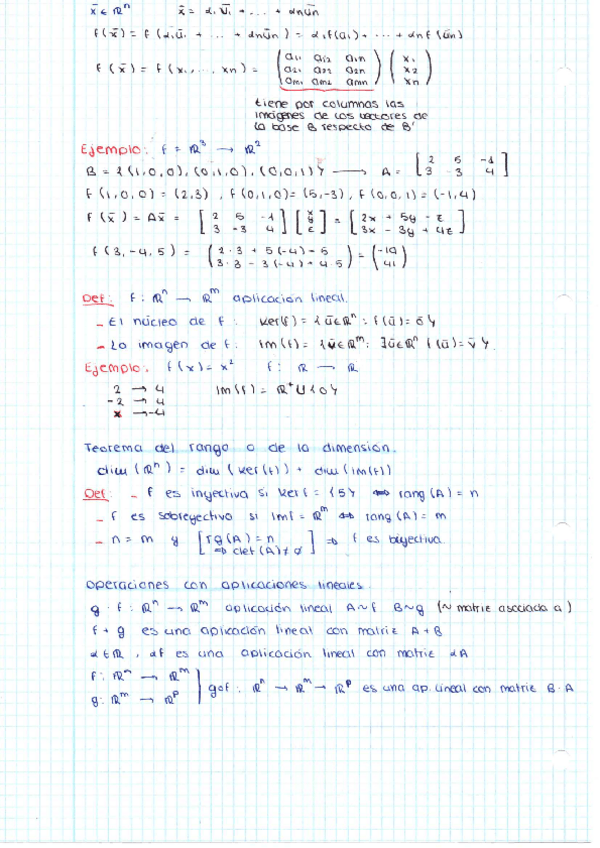 x̄ ∈ ℝⁿ x̄ = α₁ū₁ + ... + αnūn
f(x̄) = f(α₁ū₁ + ... + αnūn) = α₁f(ū₁) + ... + αnf(ūn)
f(x̄) = f(x₁, ..., xn) = (a₁₁ a₁₂ a₁n; a₂₁ a₂₂ a₂n; am₁ am₂ amn) (x₁; x₂; xn)
tiene por columnas las
imágenes de los vectores de
la base B respecto de B'
Ejemplo: f = ℝ³ → ℝ²
B = {(1,0,0), (0,1,0), (0,0,1)} → A = [2 5 -1; 3 -3 4]
f(1,0,0) = (2,3), f(0,1,0) = (5,-3), f(0,0,1) = (-1,4)
f(x̄) = Ax̄ = [2 5 -1; 3 -3 4] [x; y; z] = [2x + 5y - z; 3x - 3y + 4z]
f(3,-4,5) = (2·3 + 5(-4) - 5; 3·3 - 3(-4) + 4·5) = (-19; 41)
Def: f: ℝⁿ → ℝᵐ aplicación lineal.
- El núcleo de f: Ker(f) = {ū∈ℝⁿ : f(ū) = ō}
- La imagen de f: Im(f) = {v̄∈ℝᵐ: ∃ū∈ℝⁿ f(ū) = v̄}.
Ejemplo: f(x) = x² f: ℝ → ℝ
2 → 4 Im(f) = ℝ⁺∪{0}
-2 → 4
x → -4
Teorema del rango o de la dimensión.
dim(ℝⁿ) = dim(Ker(f)) + dim(Im(f))
Def: - f es inyectiva si Ker f = {ō} ⇔ rang(A) = n
- f es sobreyectiva si Imf = ℝᵐ ⇔ rang(A) = m
- n = m y [rg(A) = n ⇒ det(A) ≠ 0] ⇒ f es biyectiva.
Operaciones con aplicaciones lineales.
g · f: ℝⁿ → ℝᵐ aplicación lineal A~f B~g (~ matriz asociada a)
f + g es una aplicación lineal con matriz A + B
α∈ℝ, αf es una aplicación lineal con matriz αA
f: ℝⁿ → ℝᵐ
g∘f: ℝⁿ → ℝᵐ → ℝᵖ es una ap. lineal con matriz B·A
g: ℝᵐ → ℝᵖ